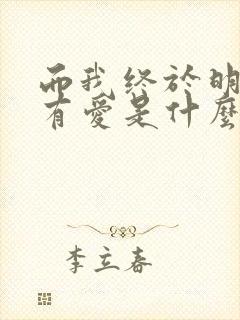 而我终於明
有爱是什麽
李立春